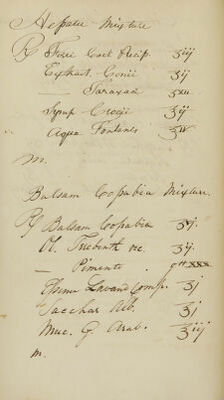 Hepatic Mixture
℞ Ferri Carb Precip. ʒiij
Extract. Conii ʒij
— Taraxaci
Syrup Crocii ʒij
Aqua Fontanis ℥iv
M.
Balsam Copabia Mixture.
℞ Balsam Copabia
Ol. Terebinth rec. ʒij
— Pimento gtt xxx
Lavand Comp. ʒj
Sacchar Alb. ʒj
Muc. G Arab. ʒiij
M.